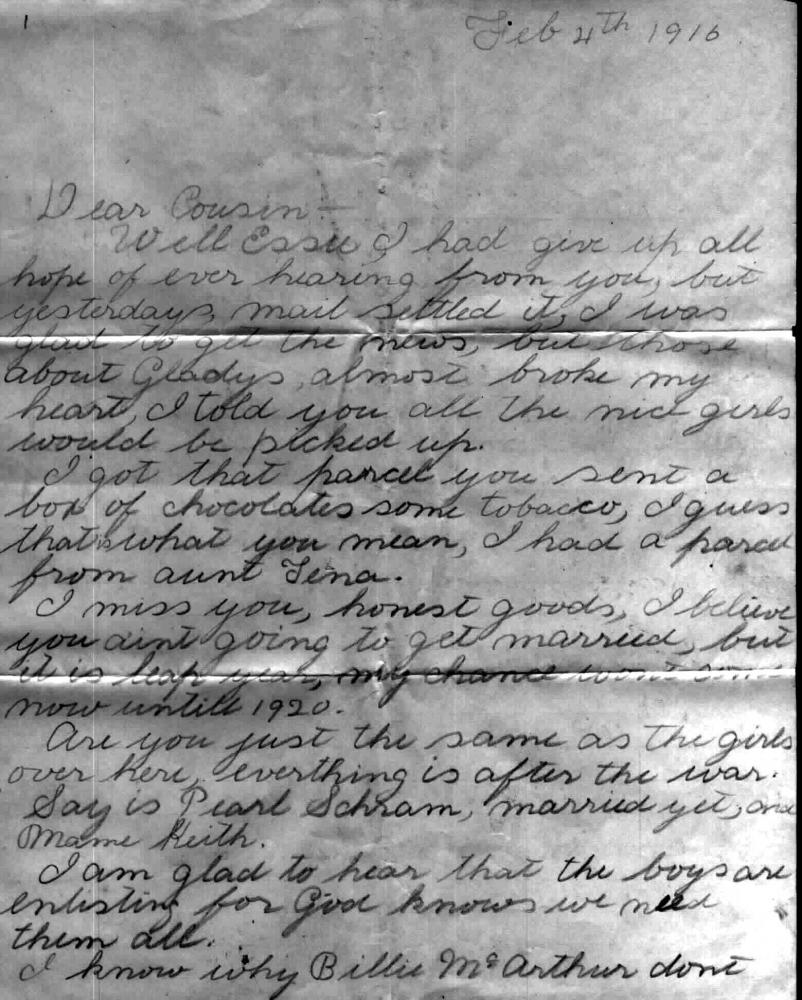 1
Feb 4th 1916
Dear Cousin—
Well Essie I had give up all
hope of ever hearing from you, but
yesterdays mail settled it, I was
glad to get the news, but those
about Gladys, almost broke my
heart, I told you all the nice girls
would be picked up.
I got that parcel you sent a
box of chocolates some tobacco, I guess
thats what you mean, I had a parcel
from aunt Tena.
I miss you, honest goods, I believe
you aint going to get married, but
it is leap year, my chance wont come
now untill 1920.
Are you just the same as the girls
over here, everthing is after the war.
Say is Pearl Schram, married yet, and
Mame Keith.
I am glad to hear that the boys are
enlisting for God knows we need
them all.
I know why Billie McArthur dont